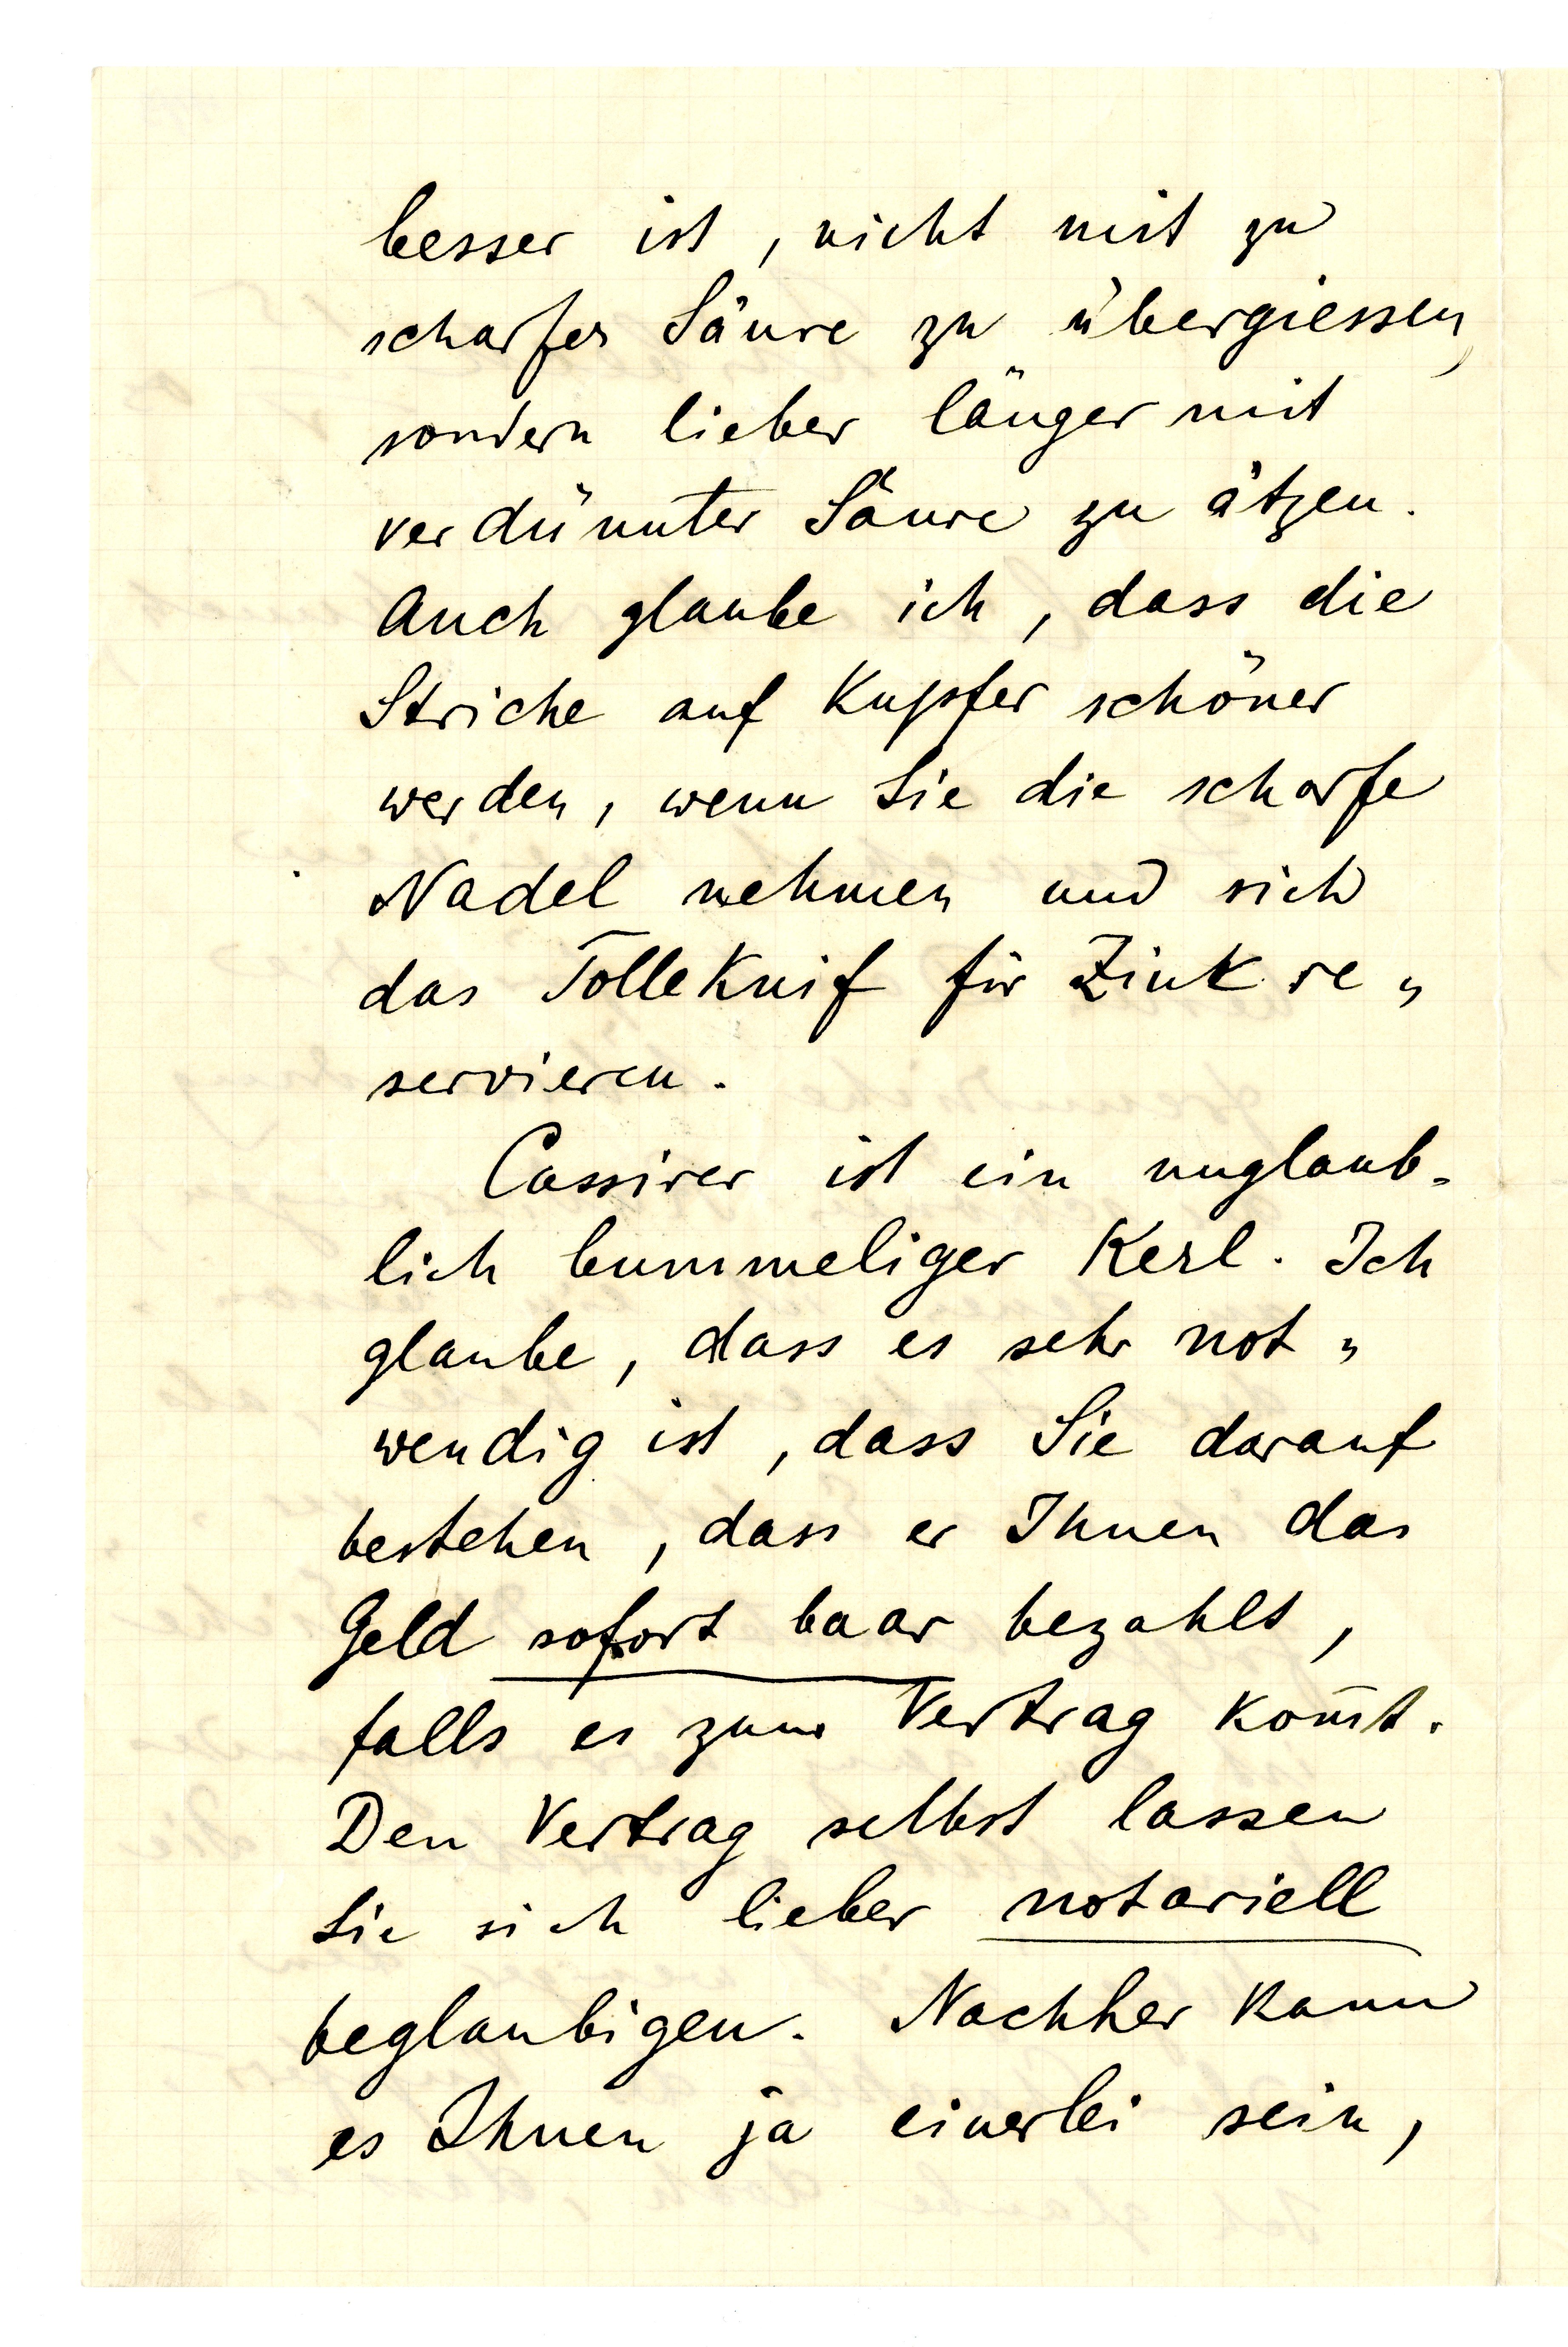 besser ist, nicht mit zu
scharfer Säure zu übergiessen,
sondern lieber länger mit
verdünnter Säure zu ätzen.
Auch glaube ich, dass die
Striche auf Kupfer schöner
werden, wenn Sie die scharfe
Nadel nehmen und sich
das Tolleknif für Zink re„
servieren.
Cassirer ist ein unglaub-
lich bummeliger Kerl. Ich
glaube, dass es sehr not„
wendig ist, dass Sie darauf
bestehen, dass er Ihnen das
Geld sofort baar bezahlt,
falls es zum Vertrag kom̅t.
Den Vertrag selbst lassen
Sie sich lieber notariell
beglaubigen. Nachher kann
es Ihnen ja einerlei sein,